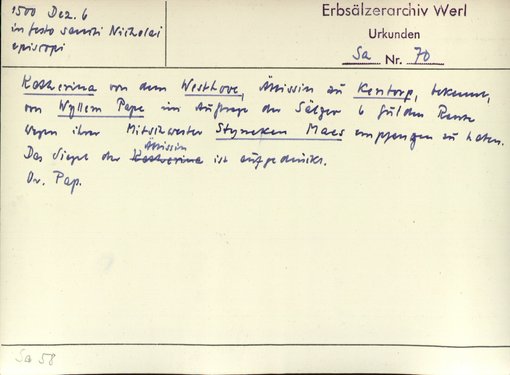 1500 Dez. 6
in festo sancti Nicholai
episcopi
Erbsälzerarchiv Werl
Urkunden
Sa Nr. 70
Katherina von dem Westhove, Äbtissin zu Kentorp, bekennt,
von Wyllem Pape im Auftrage der Sälzer 6 Gulden Rente
wegen ihrer Mitschwester Styneken Maes empfangen zu haben.
Das Siegel der Katherina Äbtissin ist aufgedrückt.
Or. Pap.
Sa 58